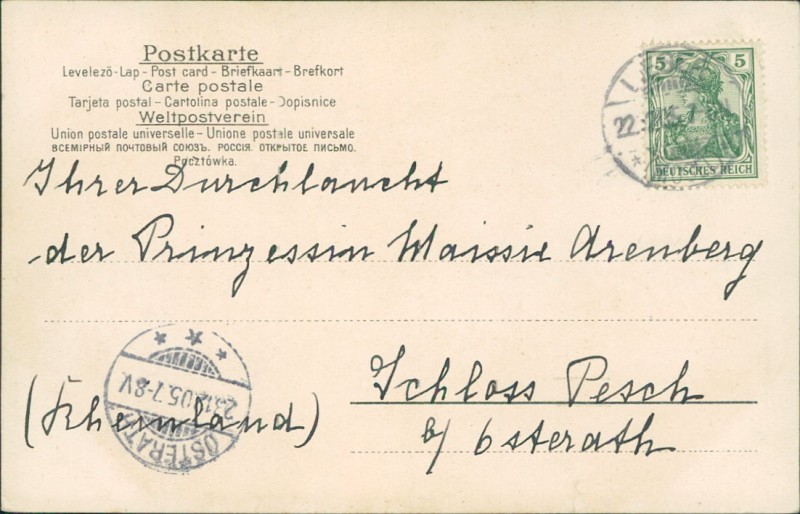 Postkarte
Levelező-Lap - Post card - Briefkaart - Brefkort
Carte postale
Tarjeta postal - Cartolina postale - Dopisnice
Weltpostverein
Union postale universelle - Unione postale universale
ВСЕМІРНЫЙ ПОЧТОВЫЙ СОЮЗЪ. РОССІЯ. ОТКРЫТОЕ ПИСЬМО.
Pocztówka.
5 5
DEUTSCHES REICH
22.
Ihrer Durchlaucht
der Prinzessin Maissie Arenberg
Schloss Pesch
b/ Osterath
(Rheinland)
23.12.05.7-8V.
OSTERATH